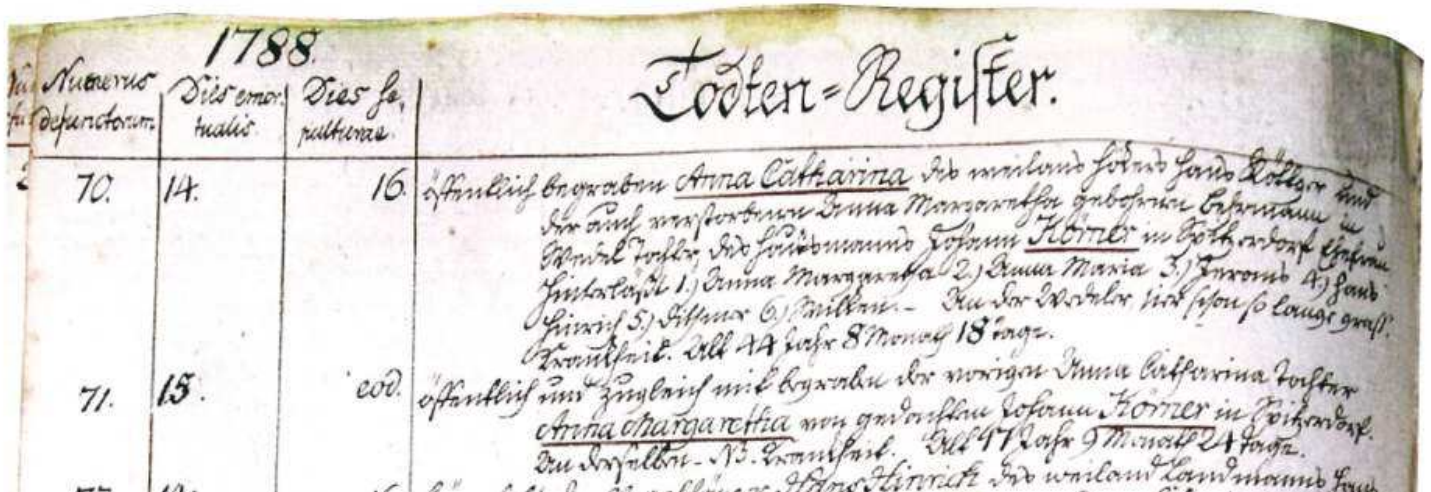 1788.
Todten-Register.
Numerus defunctorum.
Dies emor-
tualis.
Dies se-
pulturae.
70. 14. 16. öffentlich begraben Anna Catharina des weiland Hans und
der auch verstorbenen Anna Margaretha gebohrnen Behrmann in
Wedel Tochter, des Hausmanns Johann Körner in Spitzerdorf Ehefrau
hinterläßt 1.) Anna Margaretha 2.) Anna Maria 3.) 4.) Hans
Hinrich 5.) 6.) An der Wedeler, hier schon so lange grass.
Krankheit. Alt 44 Jahr 8 Monath 18 Tage.
71. 15. eod. öffentlich und zugleich mit begraben der vorigen Anna Catharina Tochter
Anna Margaretha von gedachten Johann Körner in Spitzerdorf.
An derselben Krankheit. Alt 17 Jahr 9 Monath 24 Tage.
Hans Hinrich des weiland Landmanns Hans